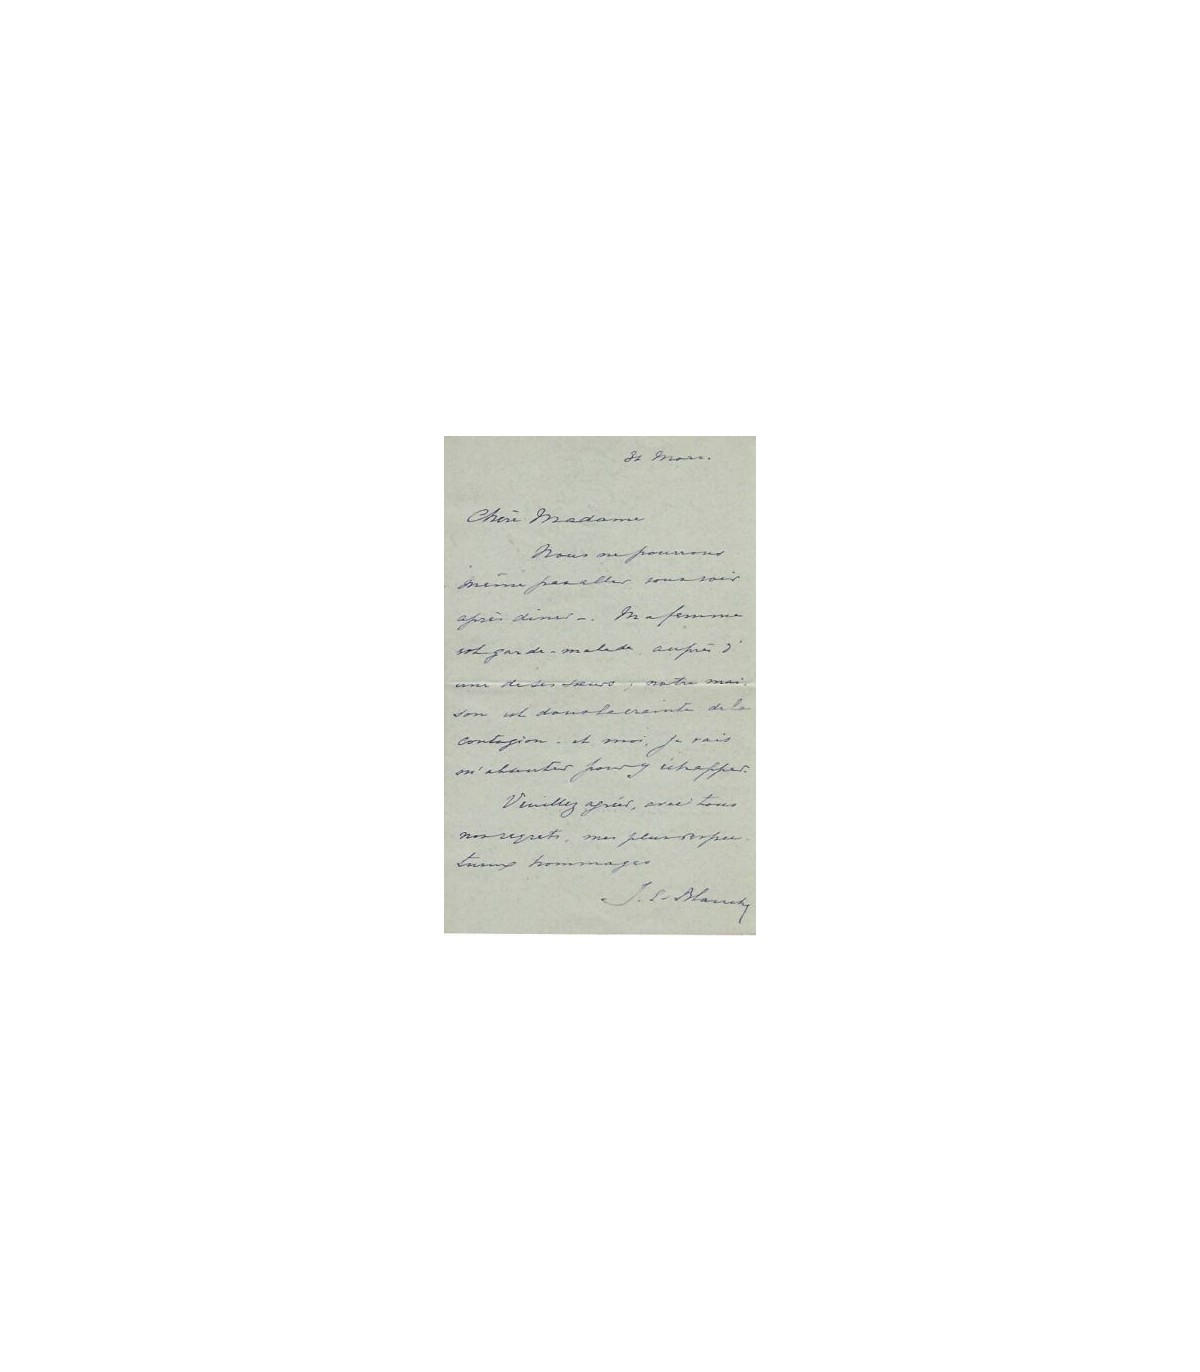 31 Mars.
Chère Madame
Nous ne pourrons
même pas aller vous voir
après diner –. Ma femme
est garde-malade auprès d'
une de ses sœurs ; notre mai-
son est dans la crainte de la
contagion – et moi, je vais
m'absenter pour y échapper.
Veuillez agréer, avec tous
nos regrets, mes plus respec-
tueux hommages
J. E. Blanche